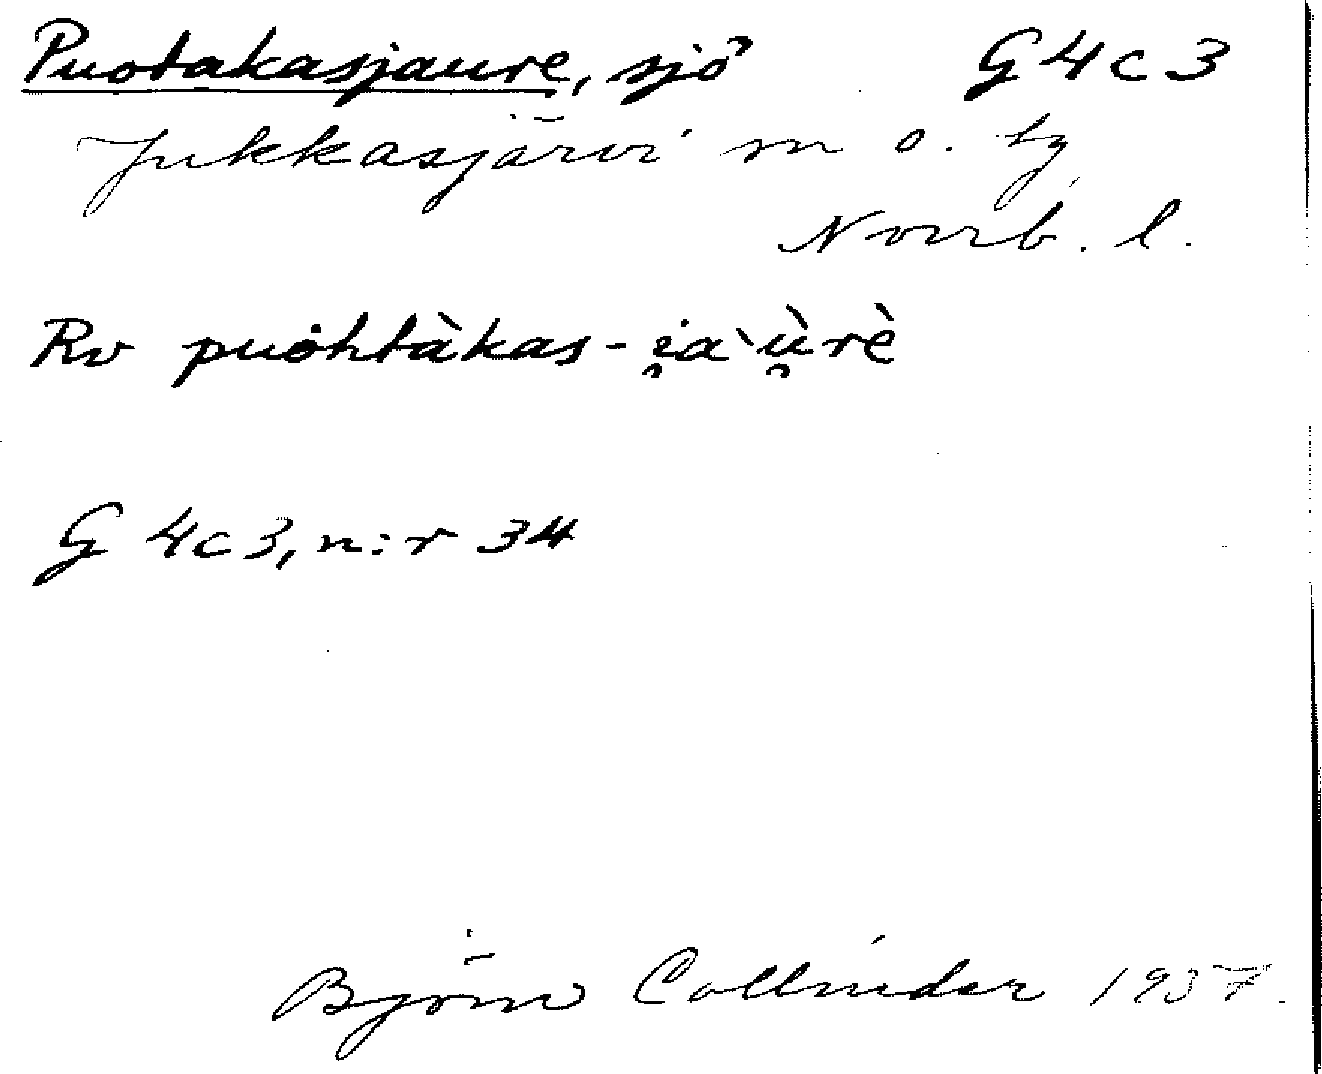 Puotakasjaure, sjö G4c3
Jukkasjärvi sn o. tg
Norrb. l.
Rv puȯhtàkas-i̯a`ù̯rè
G 4c3, n:r 34
Björn Collinder 1937.